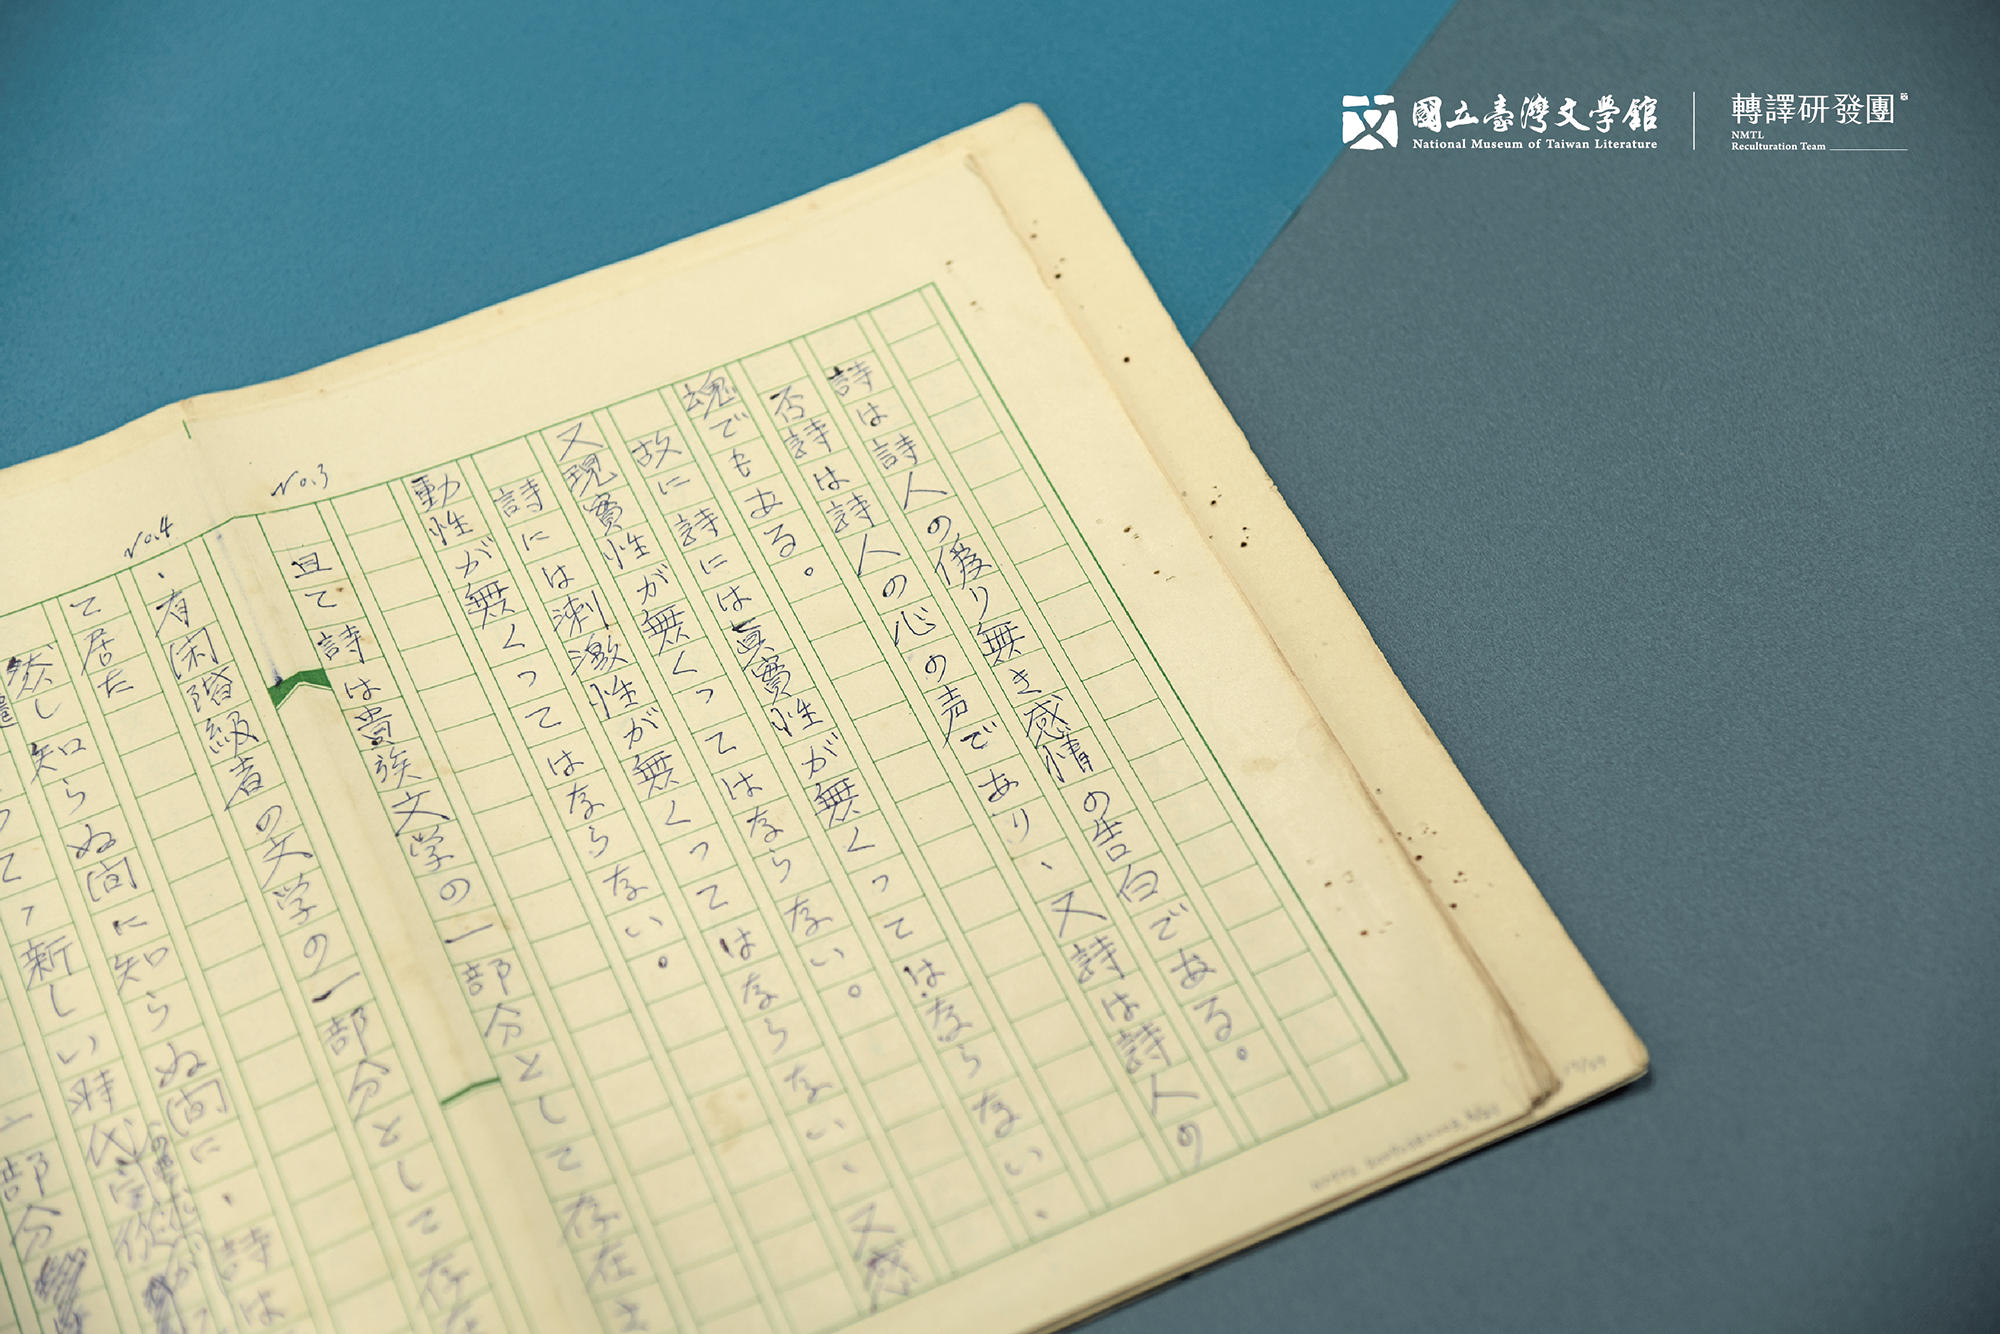 國立臺灣文學館
National Museum of Taiwan Literature
轉譯研發團
NMTL
Reculturation Team
No.3
詩は詩人の偽り無き感情の告白である。
否詩は詩人の心の声であり、又詩は詩人の
魂でもある。
故に詩には眞實性が無くってはならない、
又現實性が無くってはならない。
詩には刺激性が無くってはならない、又感
動性が無くってはならない。
且て詩は貴族文学の一部分として存在
No.4
、有閑階級者の文学の一部分として存在
て居た
然し知らぬ間に知らぬ間に、詩は
って新しい時代
一部分